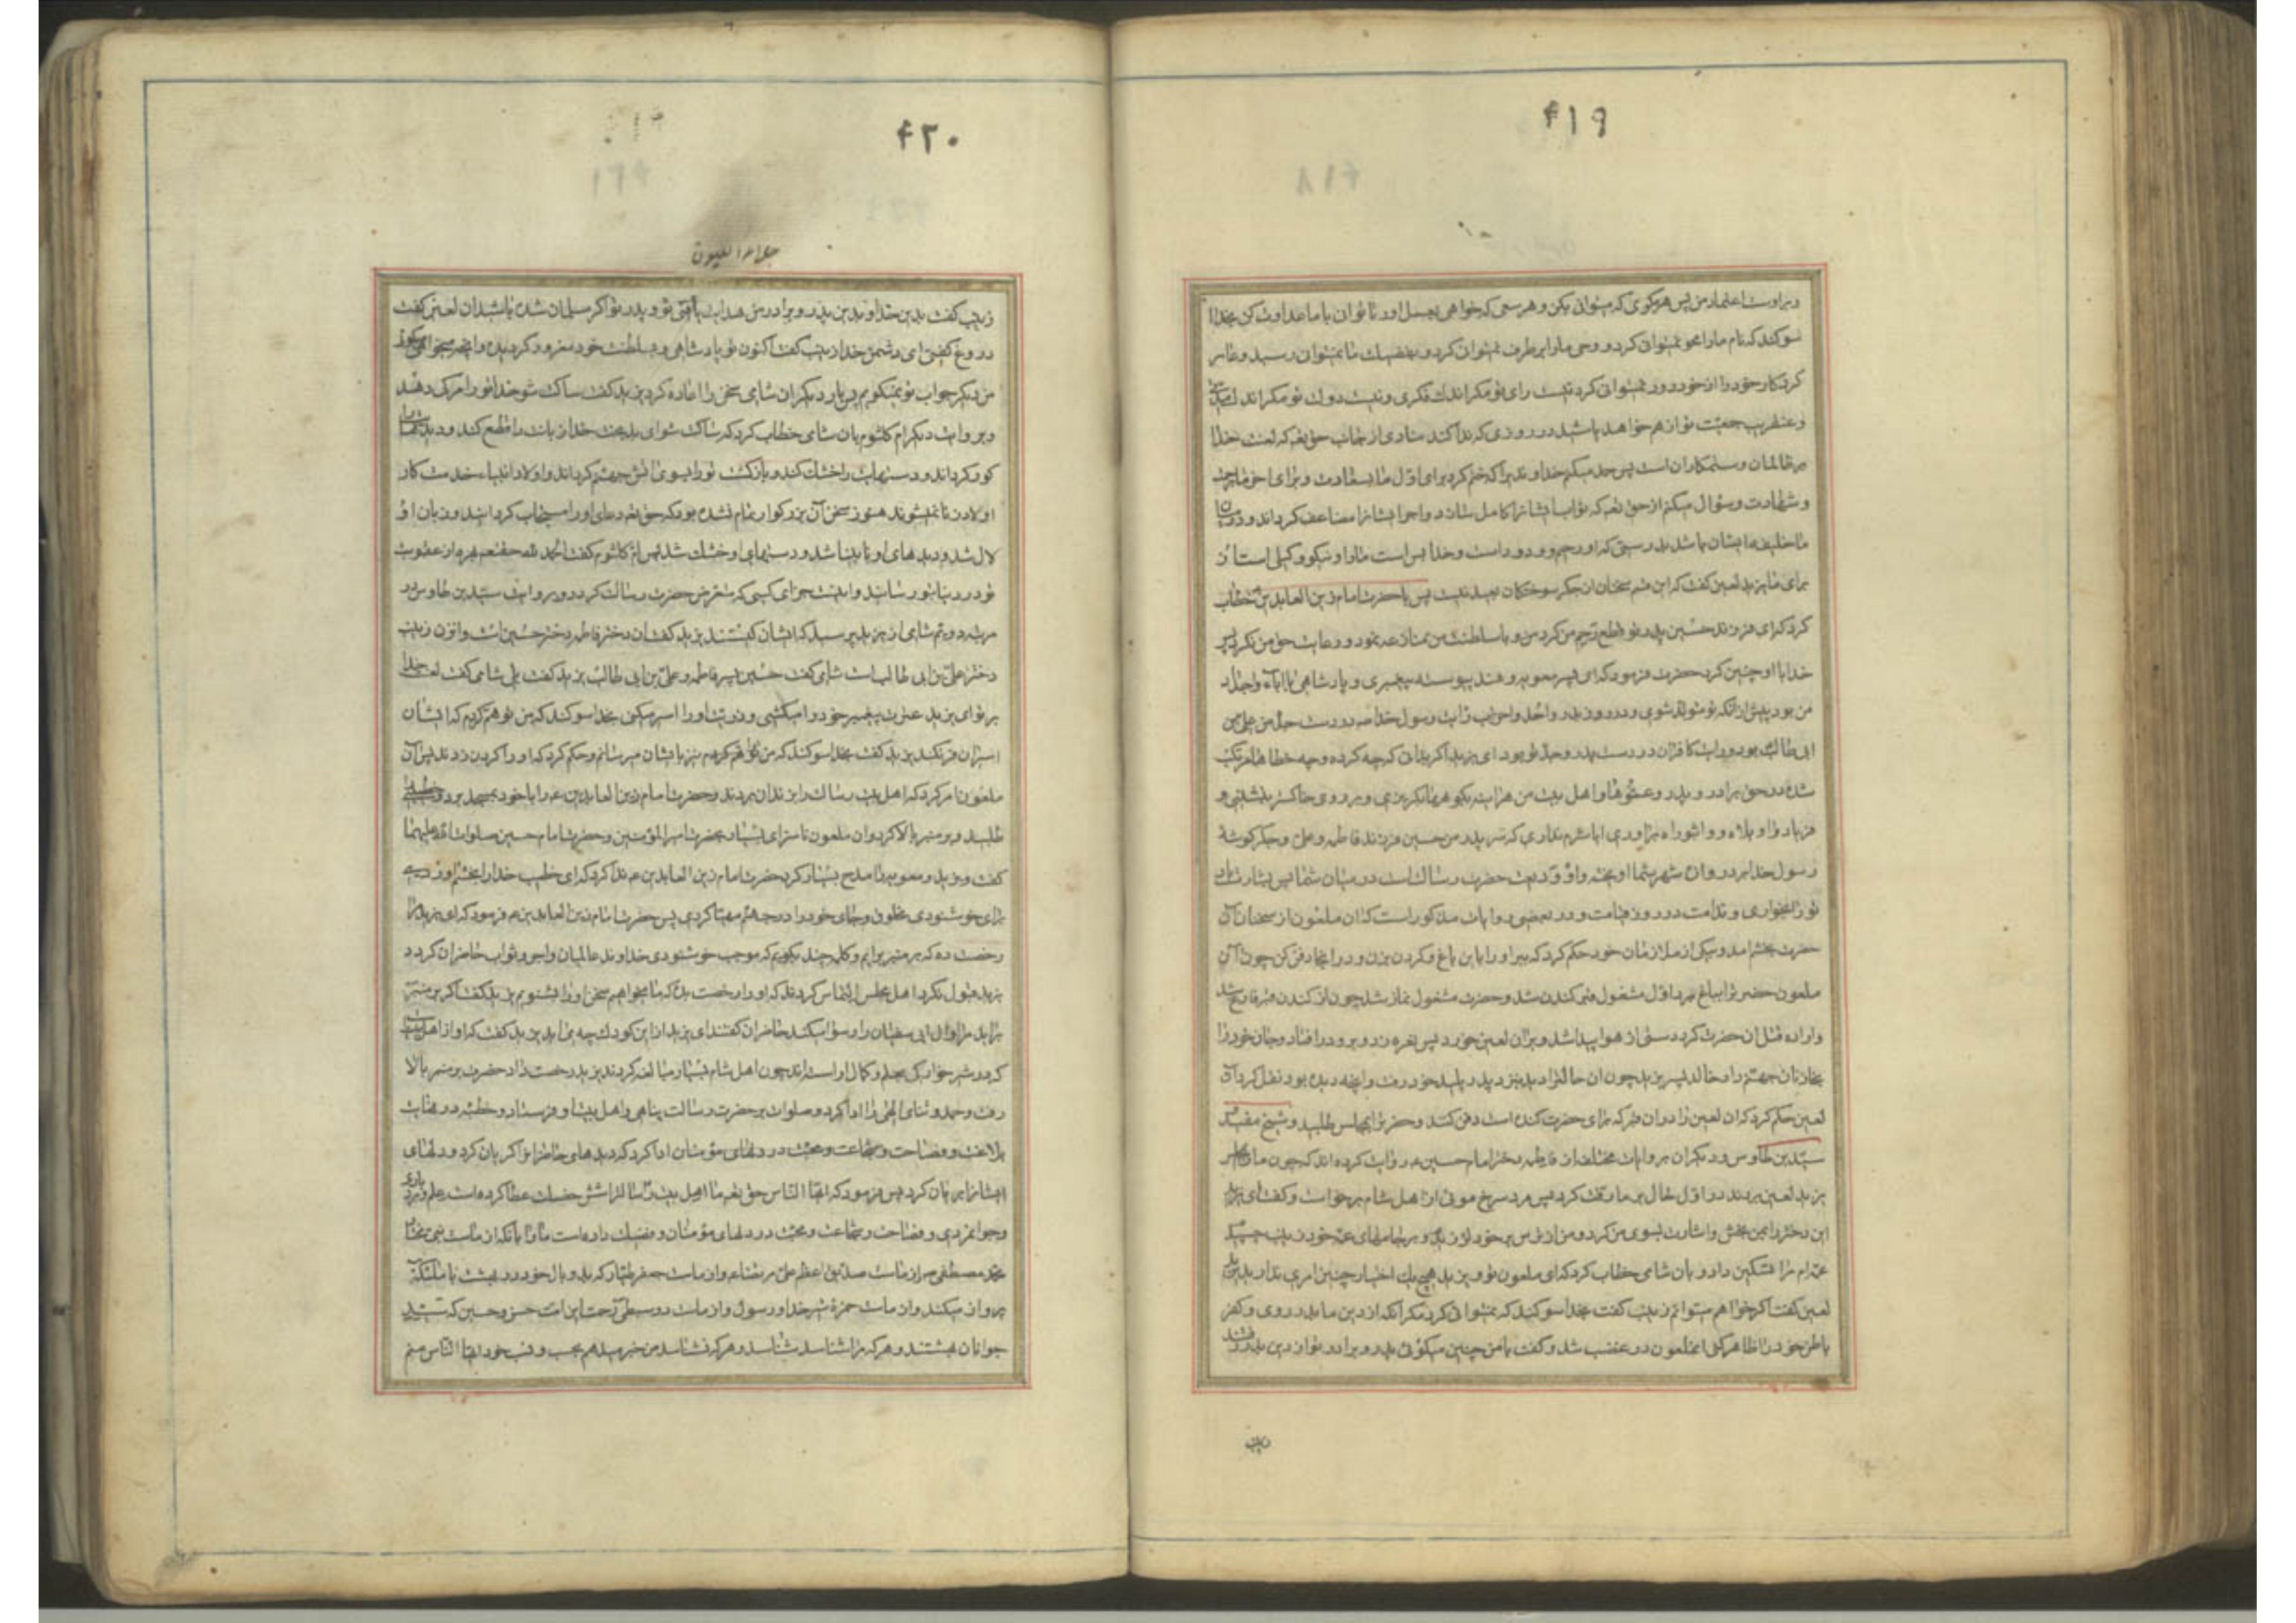 ۴۱۹
و بر اوست اعتماد من پس هر مکری که میتوانی بکن و هر سعی که خواهی بعمل اور تا توان با ما عداوت کن بخدا
سوکند که نام ما را محو نمیتوانی کرد و وحی ما را برطرف نمیتوان کرد و بفضیلت ما نمیتوان رسید و عار
کردار خود را از خود دور نمیتوانی کرد نیست رای تو مکر اندک فکری و نیست دولت تو مکر اندک
و عنقریب جمعیت تو از هم خواهد پاشید در روزی که ندا کند منادی از جانب حق تعه که لعنت خدا
بر ظالمان و ستمکاران است پس حمد میکنم خداوندیرا که ختم کرد برای اول ما بسعادت و برای اخر ما برحمت
و شهادت و سؤال میکنم از حق تعه که ثواب ایشانرا کامل کرداند و اجر ایشانرا مضاعف کرداند و
ما خلیفه ایشان باشد بدرستی که او رحیم و ودود است و خدا بس است ما را و نیکو وکیلی است از
برای ما یزید لعین کفت که این قسم سخنان از جکر سوختکان بعید نیست پس با حضرت امام زین العابدین خطاب
کرد که ای فرزند حسین پدر تو قطع رحم من کرد و با سلطنت من منازعه نمود و رعایت حق من نکرد پس
خدا با او چنین کرد حضرت فرمود که ای پسر معویه و هند پیوسته پیغمبری و پادشاهی با اباء و اجداد
من بود پیش از انکه تو متولد شوی و در روز بدر و احد و احزاب رایت رسول خدا ص در دست جد من علی بن
ابی طالب بود و رایت کافران در دست پدر و جد تو بود ای یزید اکر بدانی که چه کرده و چه خطاها مرتکب
شده در حق برادر و پدر و عموها و اهل بیت من هراینه بکوهها بکریزی و بر روی خاکستر بنشینی و
فریاد واویلاه و واثبوراه براوری ایا شرم نداری که سر پدر من حسین فرزند فاطمه و علی و جکرکوشه
رسول خدا بر دروازه شهر شما اویخته و او ودیعت حضرت رسالت است در میان شما پس بشارت باد
تو را بخواری و ندامت در روز قیامت و در بعضی روایات مذکور است که ان ملعون از سخنان آن
حضرت بخشم امد و بیکی از ملازمان خود حکم کرد که ببر او را باین باغ و کردن بزن و در انجا دفن کن چون آن
ملعون حضرترا بباغ برد اول مشغول قبر کندن شد و حضرت مشغول نماز شد چون از کندن قبر فارغ شد
و اراده قتل ان حضرت کرد دستی از هوا پیدا شد و بران لعین خورد پس نعره زد و برو در افتاد و جان خود را
بخازنان جهنم داد خالد پسر یزید چون ان حال را دید بنزد پدر پلید خود رفت و انچه دیده بود نقل کرد آن
لعین حکم کرد که ان لعین را در ان قبر که برای حضرت کنده است دفن کنند و حضرترا بمجلس طلبید و شیخ مفید
سید بن طاوس و دیکران بروایات مختلفه از فاطمه دختر امام حسین ع روایت کرده اند که چون ما را بمجلس
یزید لعین بردند در اول حال بر ما رقت کرد پس مرد سرخ موئی از اهل شام برخواست و کفت ای یزید
این دختر را بمن بخش و اشارت بسوی من کرد و من از ترس بر خود لرزیدم و بر جامهای عمه خود زینب چسبیدم
عمه ام مرا تسکین داد و بان شامی خطاب کرد که ای ملعون تو و یزید هیچ یک اختیار چنین امری ندارید یزید
لعین کفت اکر خواهم میتوانم زینب کفت بخدا سوکند که نمیتوانی کرد مکر انکه از دین ما بدر روی و کفر
باطن خود را ظاهر کنی انملعون در غضب شد و کفت با من چنین میکوئی پدر و برادر تو از دین بدر رفتند
زینب
۴۲۰
جلاء العیون
زینب کفت بدین خدا و بدین پدر و برادر من هدایت یافتی تو و پدر تو اکر مسلمان شده باشید ان لعین کفت
دروغ کفتی ای دشمن خدا زینب کفت اکنون تو پادشاهی و بسلطنت خود مغرور کردیده و انچه میخواهی میکوئی
من دیکر جواب تو نمیکویم پس بار دیکر ان شامی سخن را اعاده کرد یزید کفت ساکت شو خدا تو را مرک دهد
و بروایت دیکر ام کلثوم بان شامی خطاب کرد که ساکت شو ای بدبخت خدا زبانت را قطع کند و دیدهات را
کور کرداند و دستهایت را خشک کند و بازکشت تو را بسوی اتش جهنم کرداند و اولاد انبیاء خدمت کار
اولاد زنا نمیشوند هنوز سخن آن بزرکوار تمام نشده بود که حق تعه دعای او را مستجاب کردانید و زبان او
لال شد و دیدهای او نابینا شد و دستهای او خشک شد پس ام کلثوم کفت الحمد لله حقتعه بهره از عقوبت
تو در دنیا بتو رسانید و اینست جزای کسی که متعرض حضرت رسالت کردد و بروایت سید بن طاوس در
مرتبه دویم شامی از یزید پرسید که ایشان کیستند یزید کفت ان دختر فاطمه دختر حسین است و ان زن زینب
دختر علی بن ابی طالب است شامی کفت حسین پسر فاطمه و علی بن ابی طالب یزید کفت بلی شامی کفت لعنت خدا
بر تو ای یزید عترت پیغمبر خود را میکشی و ذریت او را اسیر میکنی بخدا سوکند که من توهم کردم که ایشان
اسیران فرنکند یزید کفت بخدا سوکند که من تو را هم نیز بایشان میرسانم و حکم کرد که او را کردن زدند پس آن
ملعون امر کرد که اهل بیت رسالت را بزندان بردند و حضرت امام زین العابدین ع را با خود بمسجد برد و خطیبی
طلبید و بر منبر بالا کرد و ان ملعون ناسزای بسیار بحضرت امیر المؤمنین و حضرت امام حسین صلوات الله علیهما
کفت و یزید و معویه را مدح بسیار کرد حضرت امام زین العابدین ع ندا کرد که ای خطیب خدا را بخشم اوردی
برای خوشنودی مخلوق و جای خود را در جهنم مهیا کردی پس حضرت امام زین العابدین ع فرمود که ای یزید مرا
رخصت ده که بر منبر برایم و کلمه چند بکویم که موجب خوشنودی خداوند عالمیان و اجر و ثواب حاضران کردد
یزید قبول نکرد اهل مجلس التماس کردند که او را رخصت بده که ما میخواهیم سخن او را بشنویم یزید کفت اکر بر منبر
براید مرا و ال ابی سفیان را رسوا میکند حاضران کفتند ای یزید از این کودک چه براید یزید کفت که او از اهل بیتی
که در شیرخوارکی بعلم و کمال اراسته اند چون اهل شام بسیار مبالغه کردند یزید رخصت داد حضرت بر منبر بالا
رفت و حمد و ثنای الهی را ادا کرد و صلوات بر حضرت رسالت پناهی و اهل بیت او فرستاد و خطبه در غایت
بلاغت و فصاحت و شجاعت و محبت در دلهای مؤمنان ادا کرد که دیدهای حاضرانرا کریان کرد و دلهای
ایشانرا بریان کرد پس فرمود که ایها الناس حق تعه ما اهل بیت رسالترا شش خصلت عطا کرده است علم و بردباری
و جوانمردی و فصاحت و شجاعت و محبت در دلهای مؤمنان و فضیلت داده است ما را بانکه از ماست نبی مختار
محمد مصطفی ص و از ماست صدیق اعظم علی مرتضی ع و از ماست جعفر طیار که بدو بال خود در بهشت با ملئکه
پرواز میکند و از ماست حمزه شیر خدا و رسول و از ماست دو سبط این امت حسن و حسین که سید
جوانان بهشتند و هر که مرا شناسد شناسد و هر که نشناسد من خبر میدهم بحسب و نسب خود ایها الناس منم